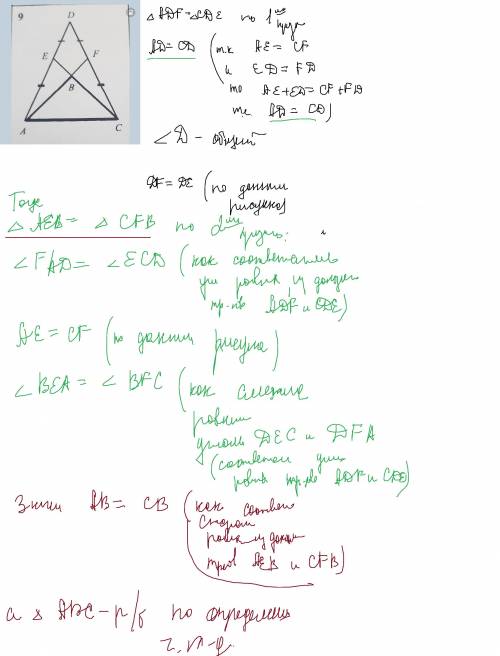 9
D
E
F
B
A
C
△ADF=△CDE по 1
AD=CD (т.к AE = CF
и ED = FD
то AE+ED= CF+FD
т.е. AD = CD)
∠D - общий
DF = DE (по данным
рисунка)
Тогда
△AEB= △CFB по 2
∠FAD= ∠ECD (как соответств
при равных из
тр-ков ADF и CDE)
AE = CF (по данным рисунка)
∠BEA = ∠BFC (как смежные
равным
углам DEC и DFA
(соответств углы
равных тр-ков ADF и CDE)
Значит AB = CB (как соответ
сторон
равных
треуг AEB и CFB)
а △ABC - р/б по определению
ч.т.д.